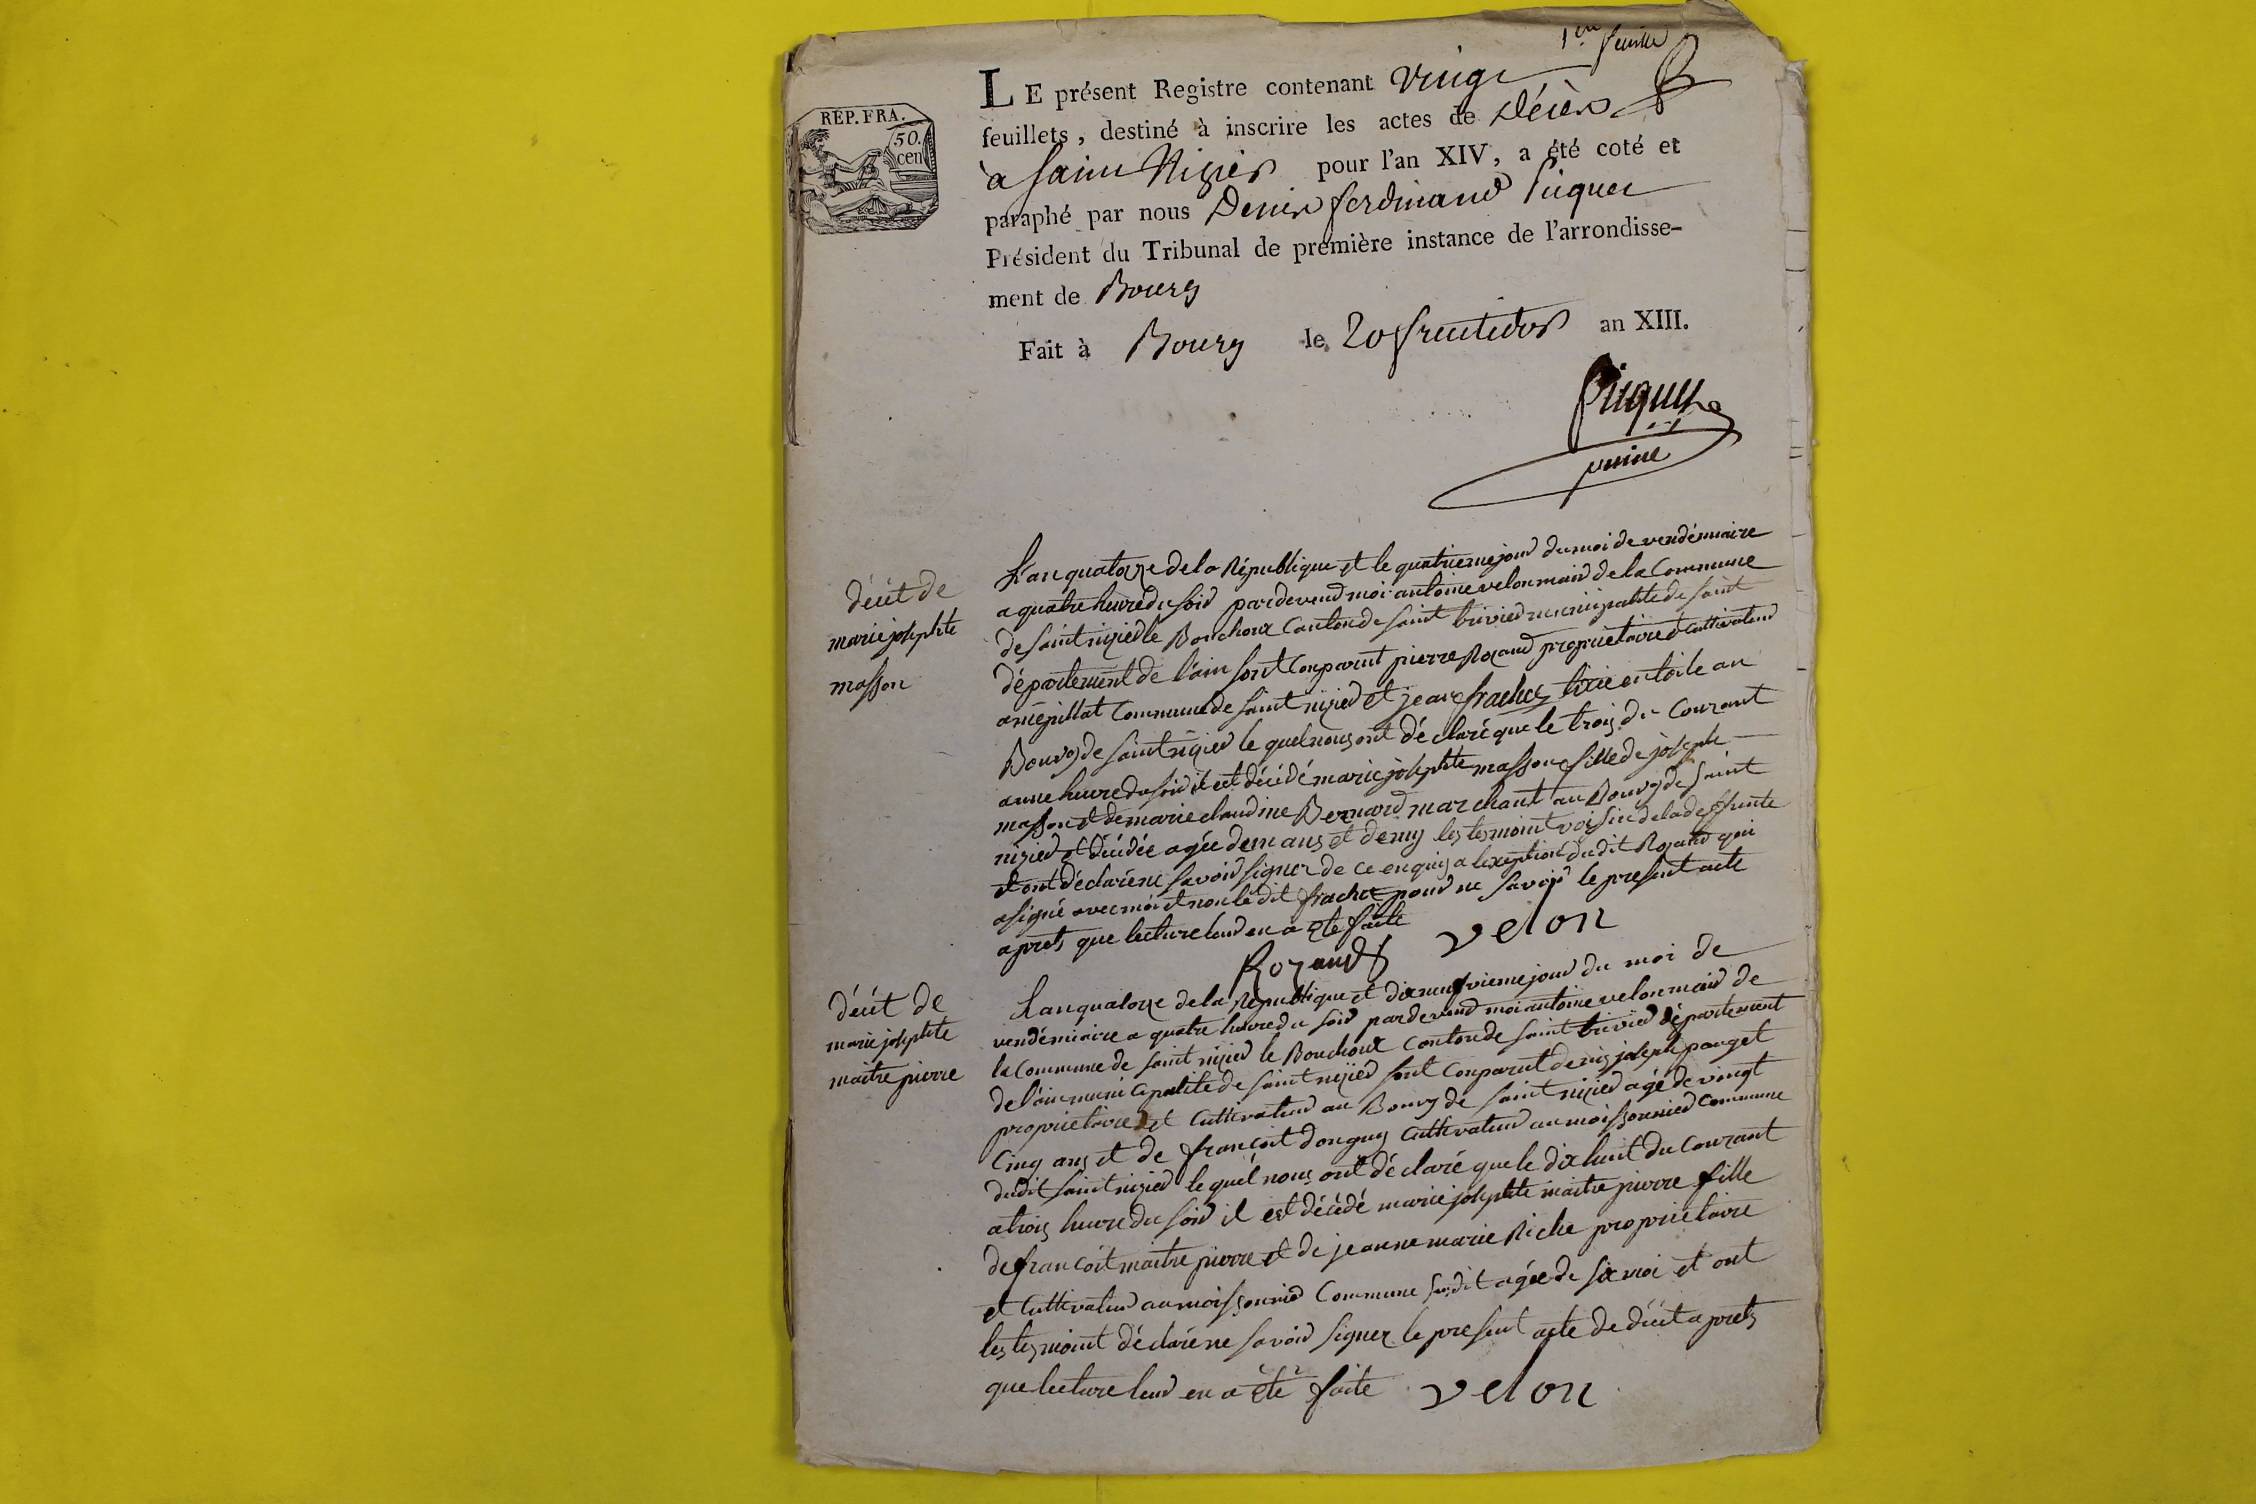 1er feuillet
REP. FRA.
50.
cen
LE présent Registre contenant vingt
feuillets, destiné à inscrire les actes de Décès
à saint Nizier pour l'an XIV, a été coté et
paraphé par nous Denis ferdinand Picquet
Président du Tribunal de première instance de l'arrondisse-
ment de Bourg
Fait à Bourg le 20 fructidor an XIII.
Picquet
décét de
marie josephte
masson
L'an quatorze de la République et le quatrieme jour du moi de vendémiaire
a quatre heure du soir pardevend moi antoine velon maire de la Commune
de saint nizier le Bouchoux Canton de saint trivier municipalité de saint
département de l'ain sont Conparut pierre Rozand propriétaire et cultivateur
a mépillat Commune de saint nizier et jean frachet en toile au
Bourg de saint nizier le quel nous ont déclaré que le trois du Courant
a une heure du soir il est décédé marie josephte masson fille de joseph
masson et de marie claudine Bernard marchant au Bourg de saint
nizier et décédée agée de ans et demy les temoint voissin de la deffunte
et ont déclaré ne savoir signer de ce enquis a lexeption dudit Rozand qui
a signé avec moi et non le dit frachet pour ne savoir le present acte
aprets que lecture leur en a été faite
Rozand velon
décét de
marie josephte
maitre pierre
L'an quatorze de la République et dix neufvieme jour du moi de
vendémiaire a quatre heure du soir pardevend moi antoine velon maire de
la Commune de saint nizier le Bouchoux Canton de saint trivier département
de l'ain municipalité de saint nizier sont Conparut denis joseph pauget
propriétaire et Cultivateur au Bourg de saint nizier agé de vingt
Cinq ans et de francoit donguy Cultivateur au moissonnier Commune
dudit saint nizier le quel nous ont déclaré que le dix huit du Courant
a trois heure du soir il est décédé marie josephte maitre pierre fille
de francoit maitre pierre et de jeanne marie Riche propriétaire
et Cultivateur au moissonnier Commune susdit agée de six moi et ont
les temoint déclaré ne savoir signer le present acte de décét aprets
que lecture leur en a été faite velon